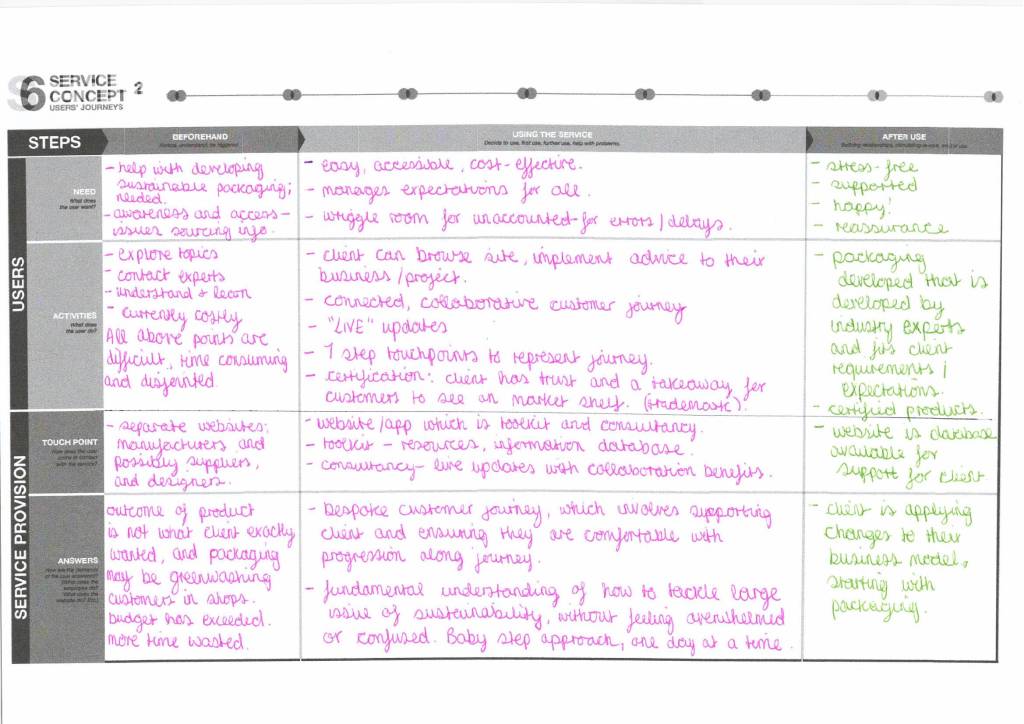 6 SERVICE CONCEPT 2
USERS' JOURNEYS
STEPS
BEFOREHAND
USING THE SERVICE
Decide to use, first use, further use, help with problems.
AFTER USE
USERS
NEED
What does
the user want?
- help with developing
sustainable packaging;
needed.
- awareness and access -
issues sourcing info.
- easy, accessible, cost-effective.
- manages expectations for all.
- wriggle room for unaccounted-for errors / delays.
- stress-free
- supported
- happy!
- reassurance
ACTIVITIES
What does
the user do?
- explore topics
- contact experts
- understand & learn
- currently costly
All above points are
difficult, time consuming
and disjointed.
- client can browse site, implement advice to their
business / project.
- connected, collaborative customer journey
- "LIVE" updates
- 7 step touchpoints to represent journey.
- certification: client has trust and a takeaway for
customers to see on market shelf.
- packaging
developed that is
developed by
industry experts
and fits client
requirements /
expectations.
- certified products.
SERVICE PROVISION
TOUCH POINT
How does the user
come in contact
with the service?
- separate websites:
manufacturers and
possibly suppliers,
and designers.
- website/app which is toolkit and consultancy.
- toolkit - resources, information database.
- consultancy - live updates with collaboration benefits.
- website is database
available for
support for client
ANSWERS
outcome of product
is not what client exactly
wanted, and packaging
may be greenwashing
customers in shops.
budget has exceeded.
more time wasted.
- bespoke customer journey, which involves supporting
client and ensuring they are comfortable with
progression along journey.
- fundamental understanding of how to tackle large
issue of sustainability, without feeling overwhelmed
or confused. Baby step approach, one day at a time.
- client is applying
changes to their
business model,
starting with
packaging.